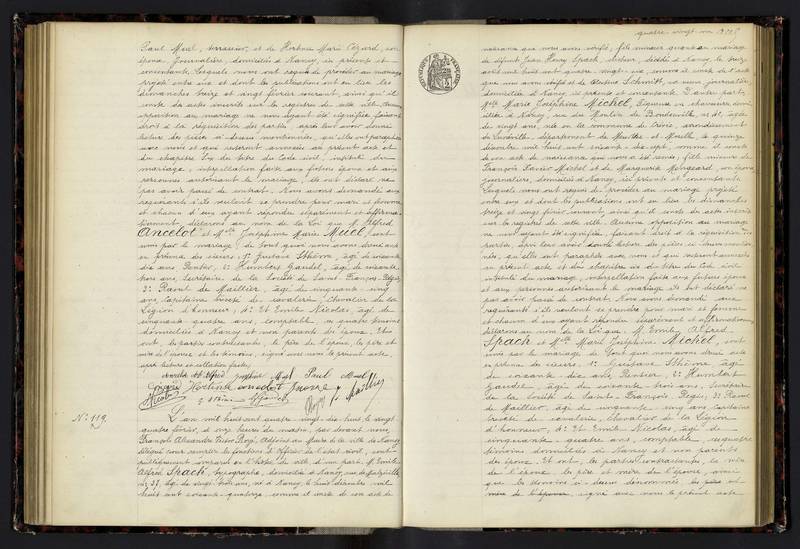 Paul Miel, terrassier, et de Hortense Marie Cézard, son
épouse, Journalière, domiciliés à Nancy, ici présents et
consentants, Lesquels nous ont requis de procéder au mariage
projeté entre eux et dont les publications ont eu lieu les
dimanches treize et vingt février courant, ainsi qu'il
conste des actes inscrits sur le registre de cette ville. Aucune
opposition au mariage ne nous ayant été signifiée, faisant
droit à la réquisition des parties, après leur avoir donné
lecture des pièces ci-dessus mentionnées, qu'elles ont paraphées
avec nous et qui resteront annexées au présent acte et
du chapitre six du titre du Code civil, intitulé du
mariage, interpellation faite aux futurs époux et aux
personnes autorisant le mariage, ils ont déclaré ne
pas avoir passé de contrat. Nous avons demandé aux
requérants s'ils veulent se prendre pour mari et femme
et chacun d'eux ayant répondu séparément et affirma-
tivement, déclarons au nom de la Loi que M. Alfred
Ancelot et Mlle Joséphine Marie Miel, sont
unis par le mariage. De tout quoi nous avons dressé acte
en présence des sieurs: 1° Gustave Sthème, âgé de soixante
dix ans, Rentier, 2° Humbert Gaudel, âgé de soixante
trois ans, Secrétaire de la Société de Saint François Régis,
3° Raoul de Maillier, âgé de cinquante-cinq
ans, Capitaine breveté de cavalerie, Chevalier de la
Légion d'honneur, 4° Et Emile Nicolas, âgé de
cinquante quatre ans, comptable, ces quatre témoins
domiciliés à Nancy et non parents des époux. Et ont
signé, les parties contractantes, le père de l'époux, les père et
mère de l'épouse et les témoins, signé avec nous le présent acte
après lecture et collation faites.
Ancelot Alfred Joséphine Miel Paul Miel
N° 119.
L'an mil huit cent quatre vingt-dix-huit, le vingt
quatre février, à onze heures du matin, par devant nous,
François Alexandre Victor Roy, Adjoint au Maire de la ville de Nancy,
délégué pour remplir les fonctions d'officier de l'état civil, sont
publiquement comparus en l'hôtel de ville, d'une part, M. Emile
Alfred Spach, typographe, domicilié à Nancy, rue de
n° 37, âgé de vingt trois ans, né à Nancy, le huit décembre mil
huit cent soixante-quatorze, comme il conste de son acte de
quatre vingt-un
naissance que nous avons vérifié, fils mineur quant au mariage
de défunt Jean Henry Spach, décédé à Nancy, le treize
avril mil huit cent quatre-vingt-six, comme il conste de l'acte
que nous avons vérifié et de Célestine Schmitt, sa veuve, journalière,
domiciliée à Nancy, ici présente et consentante. D'autre part,
Mlle Marie Joséphine Michel, Piqueuse en chaussures, domi-
ciliée à Nancy, rue du Moulin de Boudonville, n° 28, âgée
de vingt ans, née en la commune de Crévic, arrondissement
de Lunéville, département de Meurthe et Moselle, le quinze
décembre mil huit cent soixante-dix-sept, comme il conste
de son acte de naissance qui nous a été remis, fille mineure de
François Xavier Michel et de Marguerite Mengeard, son épouse,
Journaliers, domiciliés à Nancy, ici présents et consentants.
Lesquels nous ont requis de procéder au mariage projeté
entre eux et dont les publications ont eu lieu les dimanches
treize et vingt février courant, ainsi qu'il conste des actes inscrits
sur le registre de cette ville. Aucune opposition au mariage
ne nous ayant été signifiée, faisant droit à la réquisition des
parties, après leur avoir donné lecture des pièces ci-dessus mention-
nées, qu'elles ont paraphées avec nous et qui resteront annexées
au présent acte et du chapitre six du titre du Code civil,
intitulé du mariage, interpellation faite aux futurs époux
et aux personnes autorisant le mariage, ils ont déclaré ne
pas avoir passé de contrat. Nous avons demandé aux
requérants s'ils veulent se prendre pour mari et femme
et chacun d'eux ayant répondu séparément et affirmativement,
déclarons au nom de la Loi que M. Emile Alfred
Spach et Mlle Marie Joséphine Michel, sont
unis par le mariage. De tout quoi nous avons dressé acte
en présence des sieurs, 1° Gustave Sthème, âgé
de soixante-dix ans, Rentier, 2° Humbert
Gaudel, âgé de soixante trois ans, Secrétaire
de la Société de Saint-François Régis, 3° Raoul
de Maillier, âgé de cinquante-cinq ans, Capitaine
breveté de cavalerie, Chevalier de la Légion
d'honneur, 4° Et Emile Nicolas, âgé de
cinquante-quatre ans, comptable, ces quatre
témoins domiciliés à Nancy et non parents
des époux. Et ont, les parties contractantes, la mère
de l'époux, les père et mère de l'épouse, ainsi
que les témoins ci-dessus dénommés, les père et
mère de l'épouse, signé avec nous le présent acte